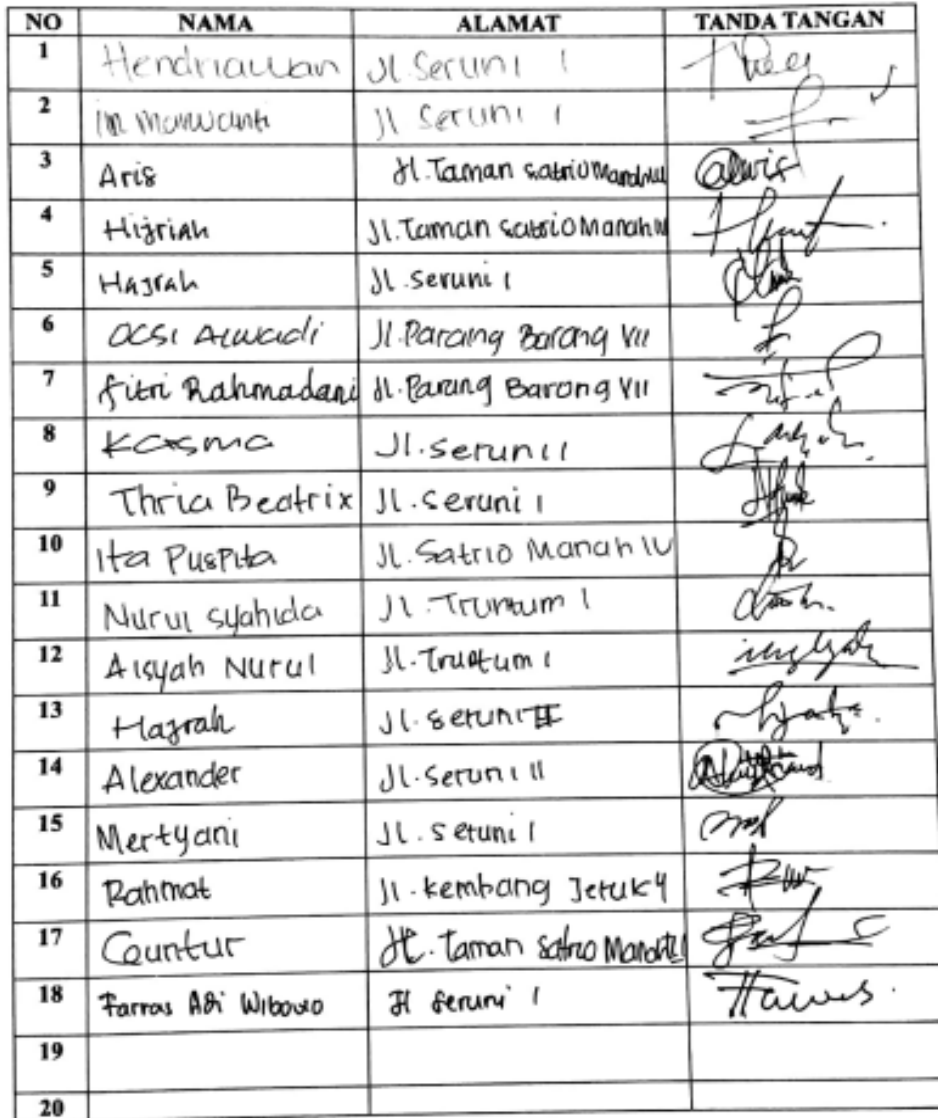 NO NAMA ALAMAT TANDA TANGAN
1 Hendriawan Jl. Seruni 1
2 Jl Seruni 1
3 Aris Jl. Taman Satrio
4 Hijriah Jl. Taman Satrio Manah IV
5 Hajrah Jl. Seruni 1
6 Jl. Parang Barong VII
7 Fitri Rahmadani Jl. Parang Barong VII
8 Kasma Jl. Seruni 1
9 Thria Beatrix Jl. Seruni 1
10 Ita Puspita Jl. Satrio Manah IV
11 Nurul Syahida Jl. Truntum 1
12 Aisyah Nurul Jl. Truntum 1
13 Hajrah Jl. Seruni II
14 Alexander Jl. Seruni II
15 Mertyani Jl. Seruni 1
16 Rahmat Jl. Kembang Jeruk 4
17 Guntur Jl. Taman Satrio
18 Farras Adi Wibowo Jl Seruni 1
19
20